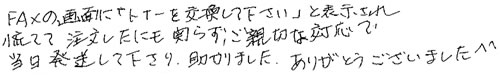 FAXの画面に「トナーを交換して下さい」と表示され
慌てて注文したにも関らず,ご親切な対応で
当日発送して下さり、助かりました。ありがとうございました^^